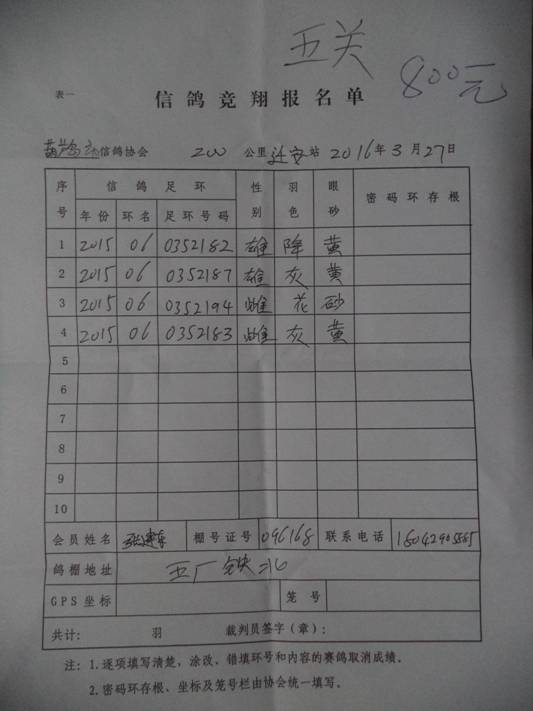 五关
800元
表一
信鸽竞翔报名单
葫芦岛市信鸽协会 200 公里 迁安 站 2016年3月27日
序号 信鸽足环 性别 羽色 眼砂 密码环存根
年份 环名 足环号码
1 2015 06 0352182 雄 降 黄
2 2015 06 0352187 雄 灰 黄
3 2015 06 0352194 雌 花 砂
4 2015 06 0352183 雌 灰 黄
5
6
7
8
9
10
会员姓名 张建东 棚号证号 096168 联系电话
鸽棚地址 五厂铁北
GPS坐标 笼号
共计: 羽 裁判员签字(章):
注: 1.逐项填写清楚,涂改、错填环号和内容的赛鸽取消成绩。
2.密码环存根、坐标及笼号栏由协会统一填写。